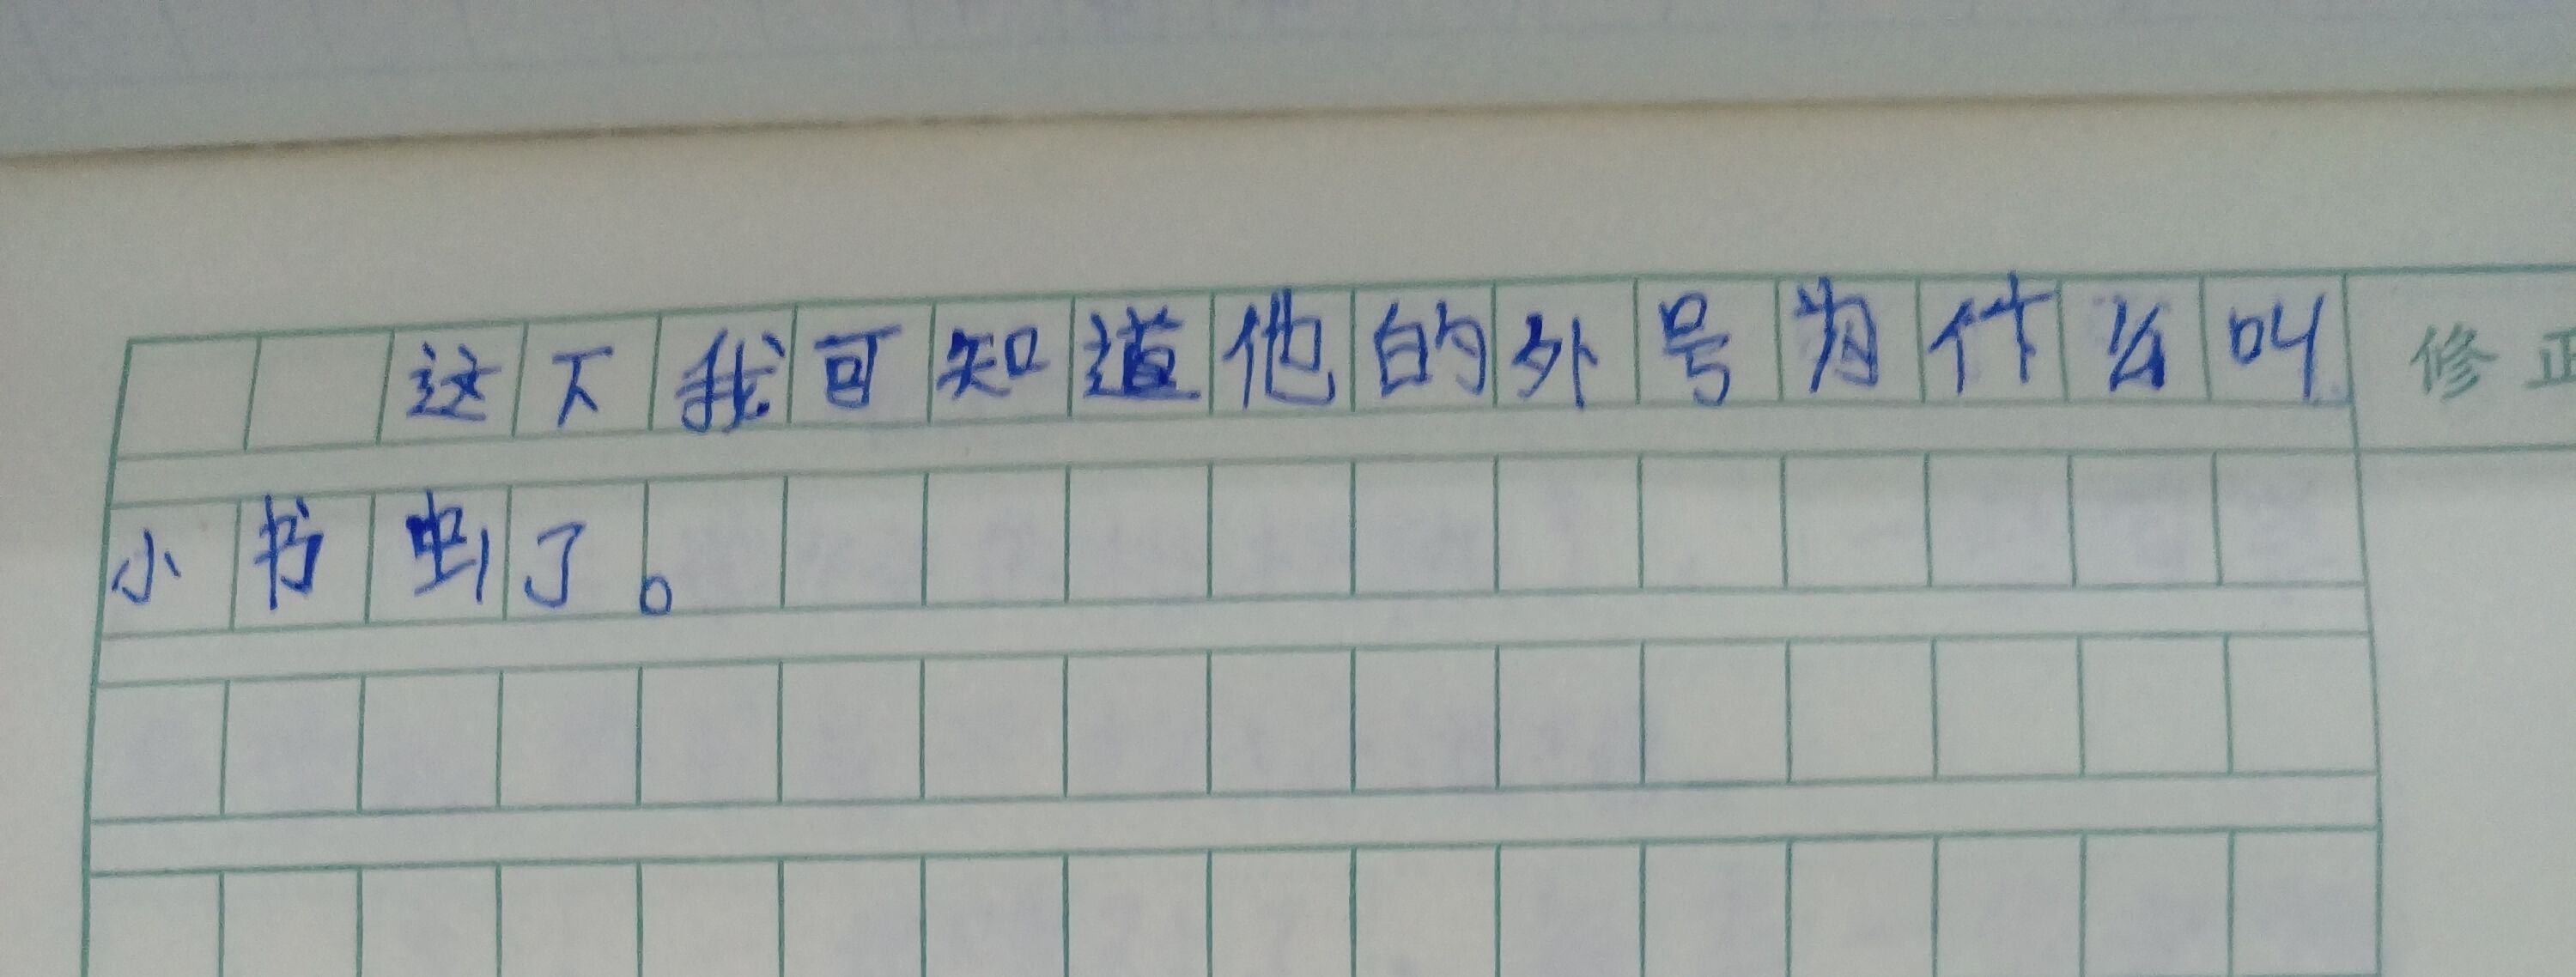 这下我可知道他的外号为什么叫
小书虫了。
修正